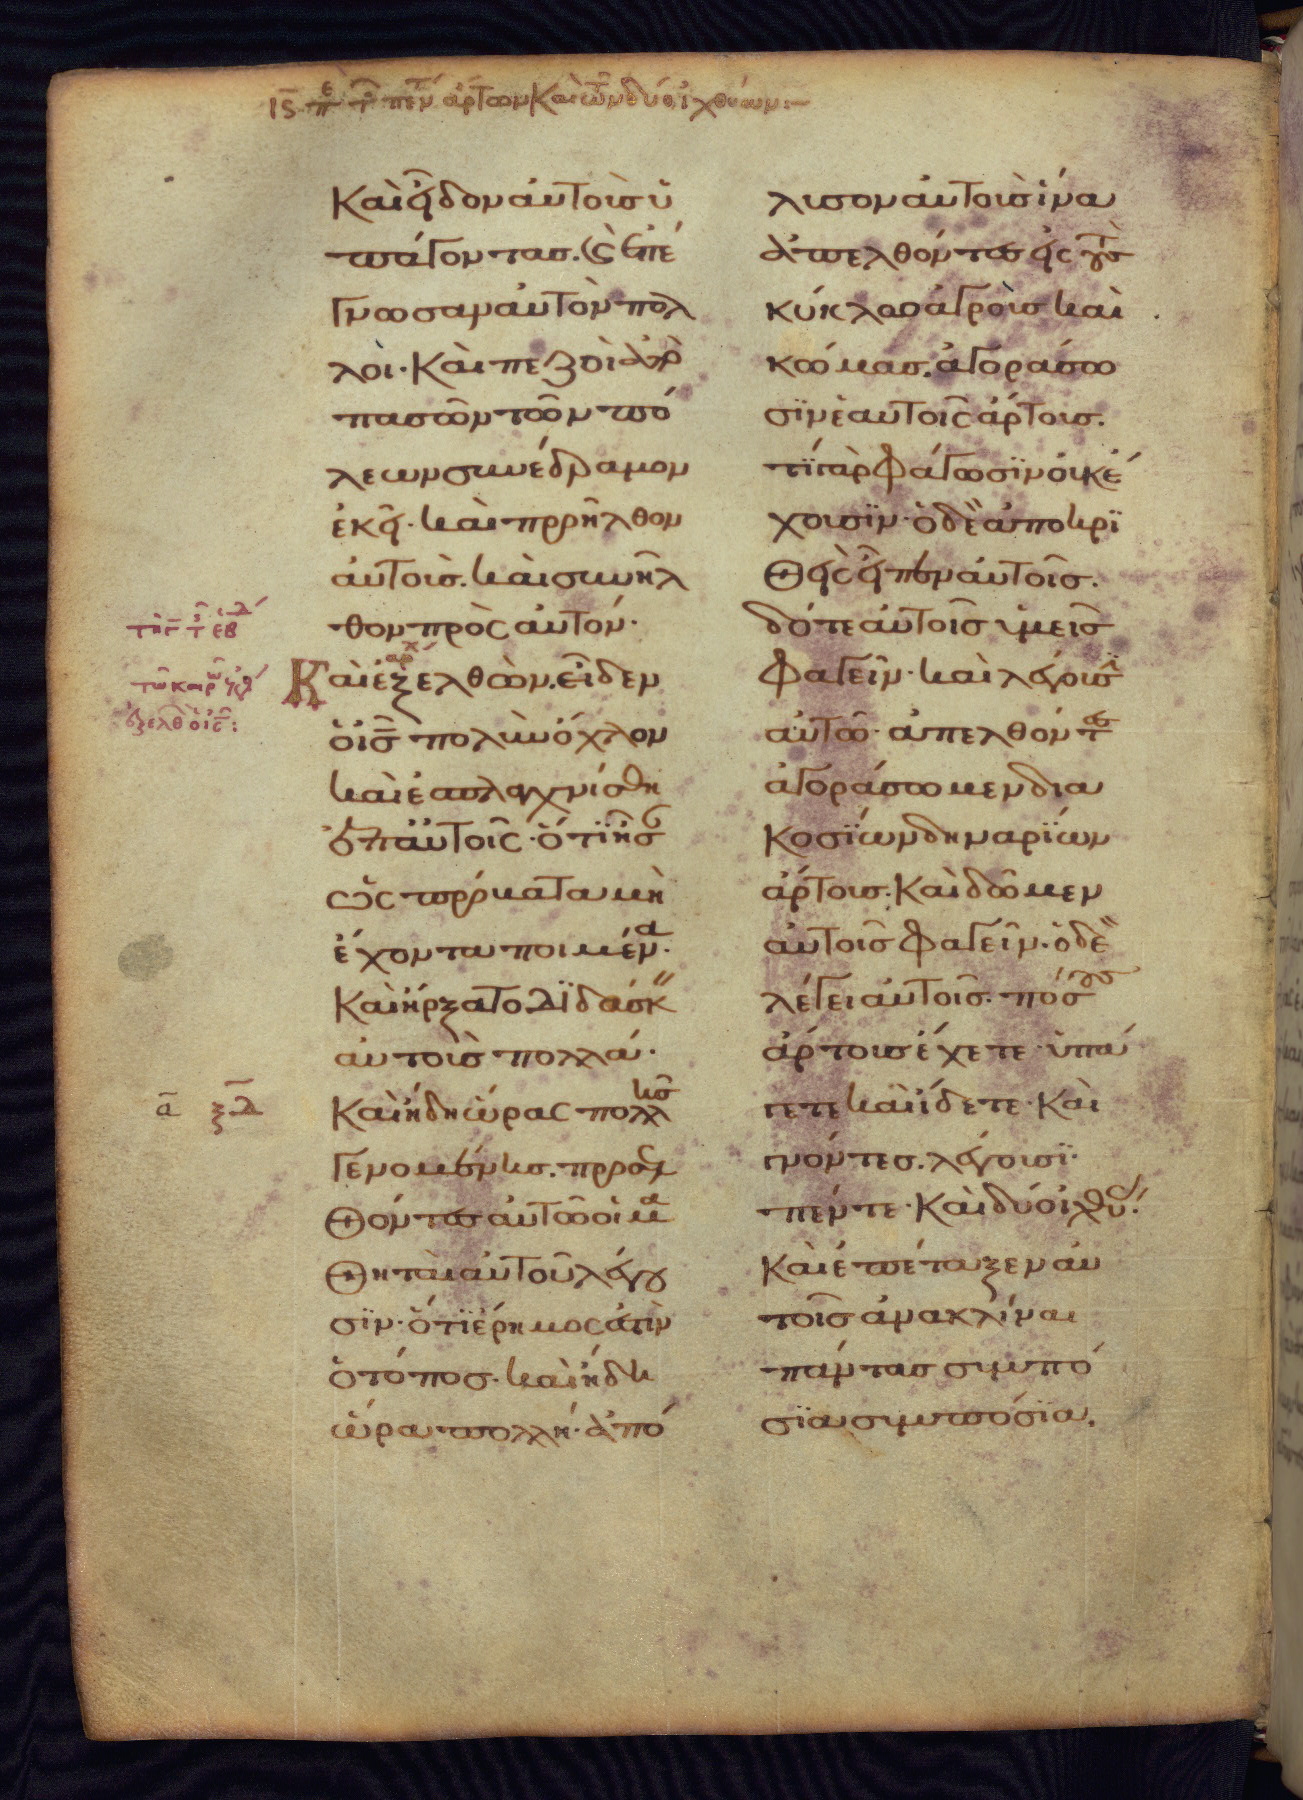 ΙϚ πε τ πεν άρτων Και των δύο ιχθύων:
Και εἶδον αὐτοὺς ὑ
πάγοντας. (ς) ἐπέ
γνωσαν αὐτὸν πολ
λοὶ· Και πεζοι ἀπὸ
πασῶν τῶν πό
λεων συνέδραμον
ἐκεῖ· και προῆλθον
αὐτούς. και συνῆλ
θον πρὸς αὐτόν·
Και ἐξελθὼν. εἶδεν
ὁ ις πολὺν ὄχλον
και ἐσπλαγχνίσθη
ἐπ αὐτοῖς· ὅτι ἦσ
ὡς πρόβατα μὴ
ἔχοντα ποιμένα·
Και ἤρξατο διδάσκ
αὐτοὺς πολλά·
Και ἤδη ὥρας πολλῆς
γενομένης. προσελ
θόντες αὐτῶ οἱ μα
θηταὶ αὐτοῦ λέγου
σϊν· ὅτι ἔρημος ἐστὶν
ὁ τόπος· και ἤδη
ὥρα πολλή· ἀπό
λυσον αὐτοὺς ἵνα
ἀπελθόντες εἰς τοὺς
κύκλω ἀγροὺς και
κώμας. ἀγοράσω
σϊν ἑαυτοῖς ἄρτους.
τί γὰρ φάγωσϊν οὐκ ἔ
χουσϊν· ὁ δὲ ἀποκρϊ
θεὶς εἶπεν αὐτοῖς.
δότε αὐτοῖς ὑμεῖς
φαγεῖν· και λέγουσϊ
αὐτῶ· ἀπελθόντες
ἀγοράσωμεν δια
κοσϊων δηναρϊων
ἄρτους. Και δῶμεν
αὐτοῖς φαγεῖν· ὁ δὲ
λέγει αὐτοῖς. πόσους
ἄρτους ἔχετε· ὑπά
γετε και ἴδετε· Και
γνόντες. λέγουσϊ·
πέντε· Και δύο ἰχθύ·
Και ἐπέταξεν αὐ
τοῖς ἀνακλῖναι
πάντας συμπό
σϊα συμπόσϊα.
α ξδ